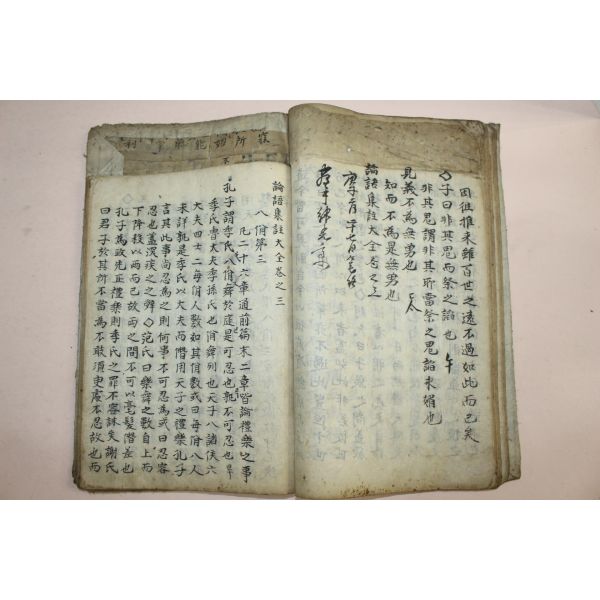 因從推來雖百世之遠不過如此而已矣
◇子曰非其鬼而祭之諂也
非其鬼謂非其所當祭之鬼諂求媚也
見義不爲無勇也
知而不爲是無勇也
論語集註大全卷之二
論語集註大全卷之三
八佾第三
凡二十六章通前篇末二章皆論禮樂之事
孔子謂季氏八佾舞於庭是可忍也孰不可忍也
季氏魯大夫季孫氏也佾舞列也天子八諸侯六
大夫四士二每佾人數如其佾數或曰每佾八人
未詳孰是季氏以大夫而僭用天子之禮樂孔子
言其此事尚忍爲之則何事不可忍爲或曰忍容
忍也盖深疾之之辭◇范氏曰樂舞之數自上而
下降殺以兩而已故兩之間不可以毫髮僭差也
孔子爲政先正禮樂則季氏之罪不容誅矣謝氏
曰君子於其所不當爲不敢須臾處不忍故也而